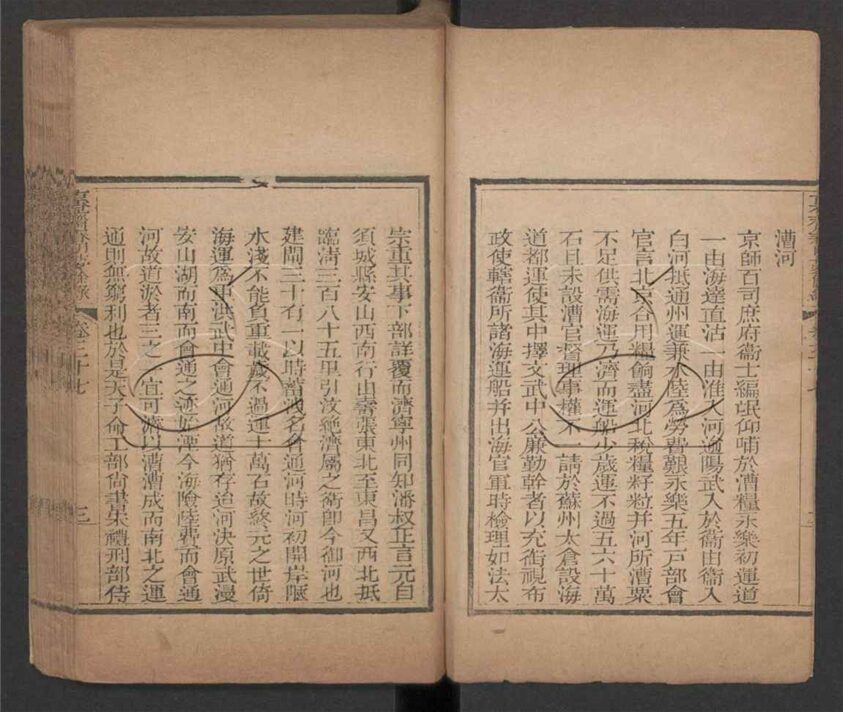 漕河
京師百司庶府衞士編氓仰哺於漕糧永樂初運道
一由海達直沽一由淮入河過陽武入於衞由衞入
白河抵通州運兼水陸爲勞費艱永樂五年戸部會
官言北京合用糧餉盡河北稅糧籽粒并河所漕粟
不足供需海運乃濟而運船少歲運不過五六十萬
石且未設漕官督理事權不一請於蘇州太倉設海
道都運使其中擇文武中公廉勤幹者以充銜視布
政使轄衞所諸海運船并出海官軍時檢理如法太
宗重其事下部詳覆而濟寧州同知潘叔正言元自
須城縣安山西南行山壽張東北至東昌又西北抵
臨淸三百八十五里引汶絶濟屬之衞卽今御河也
建閘三十有一以時蓄洩名會通河時河初開岸陿
水淺不能負重載歲不過運十萬石故終元之世倚
海運爲重洪武中會通河故道猶存迨河決原武漫
安山湖而南而會通之迹始湮今海險陸費而會通
河故道淤者三之一宜可濬以漕漕成而南北之運
通則無窮利也於是天子命工部尙書宋禮刑部侍
卷三十七
三